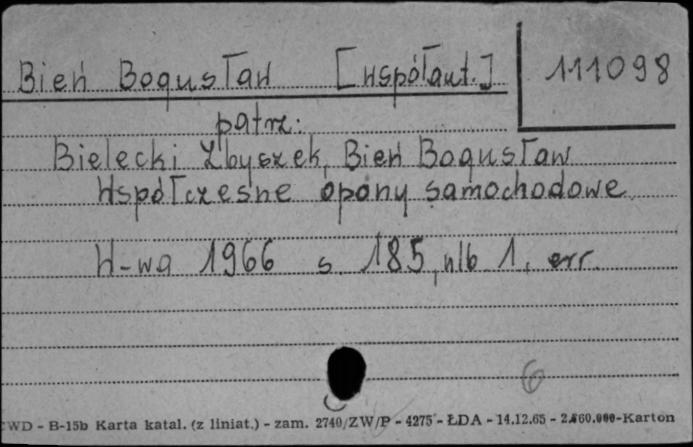 Bień Bogusław [współaut.] 111098
patrz:
Bielecki Zbyszek, Bień Bogusław
Współczesne opony samochodowe
W-wa 1966 s. 185, nlb 1, err.
6
CWD - B-15b Karta katal. (z liniat.) - zam. 2740/ZW/P - 4275 - ŁDA - 14.12.65 - Karton